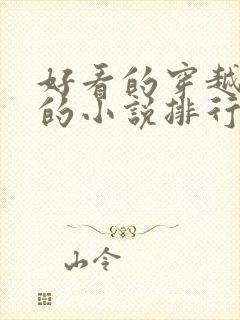 好看的穿越
的小说排行
山令